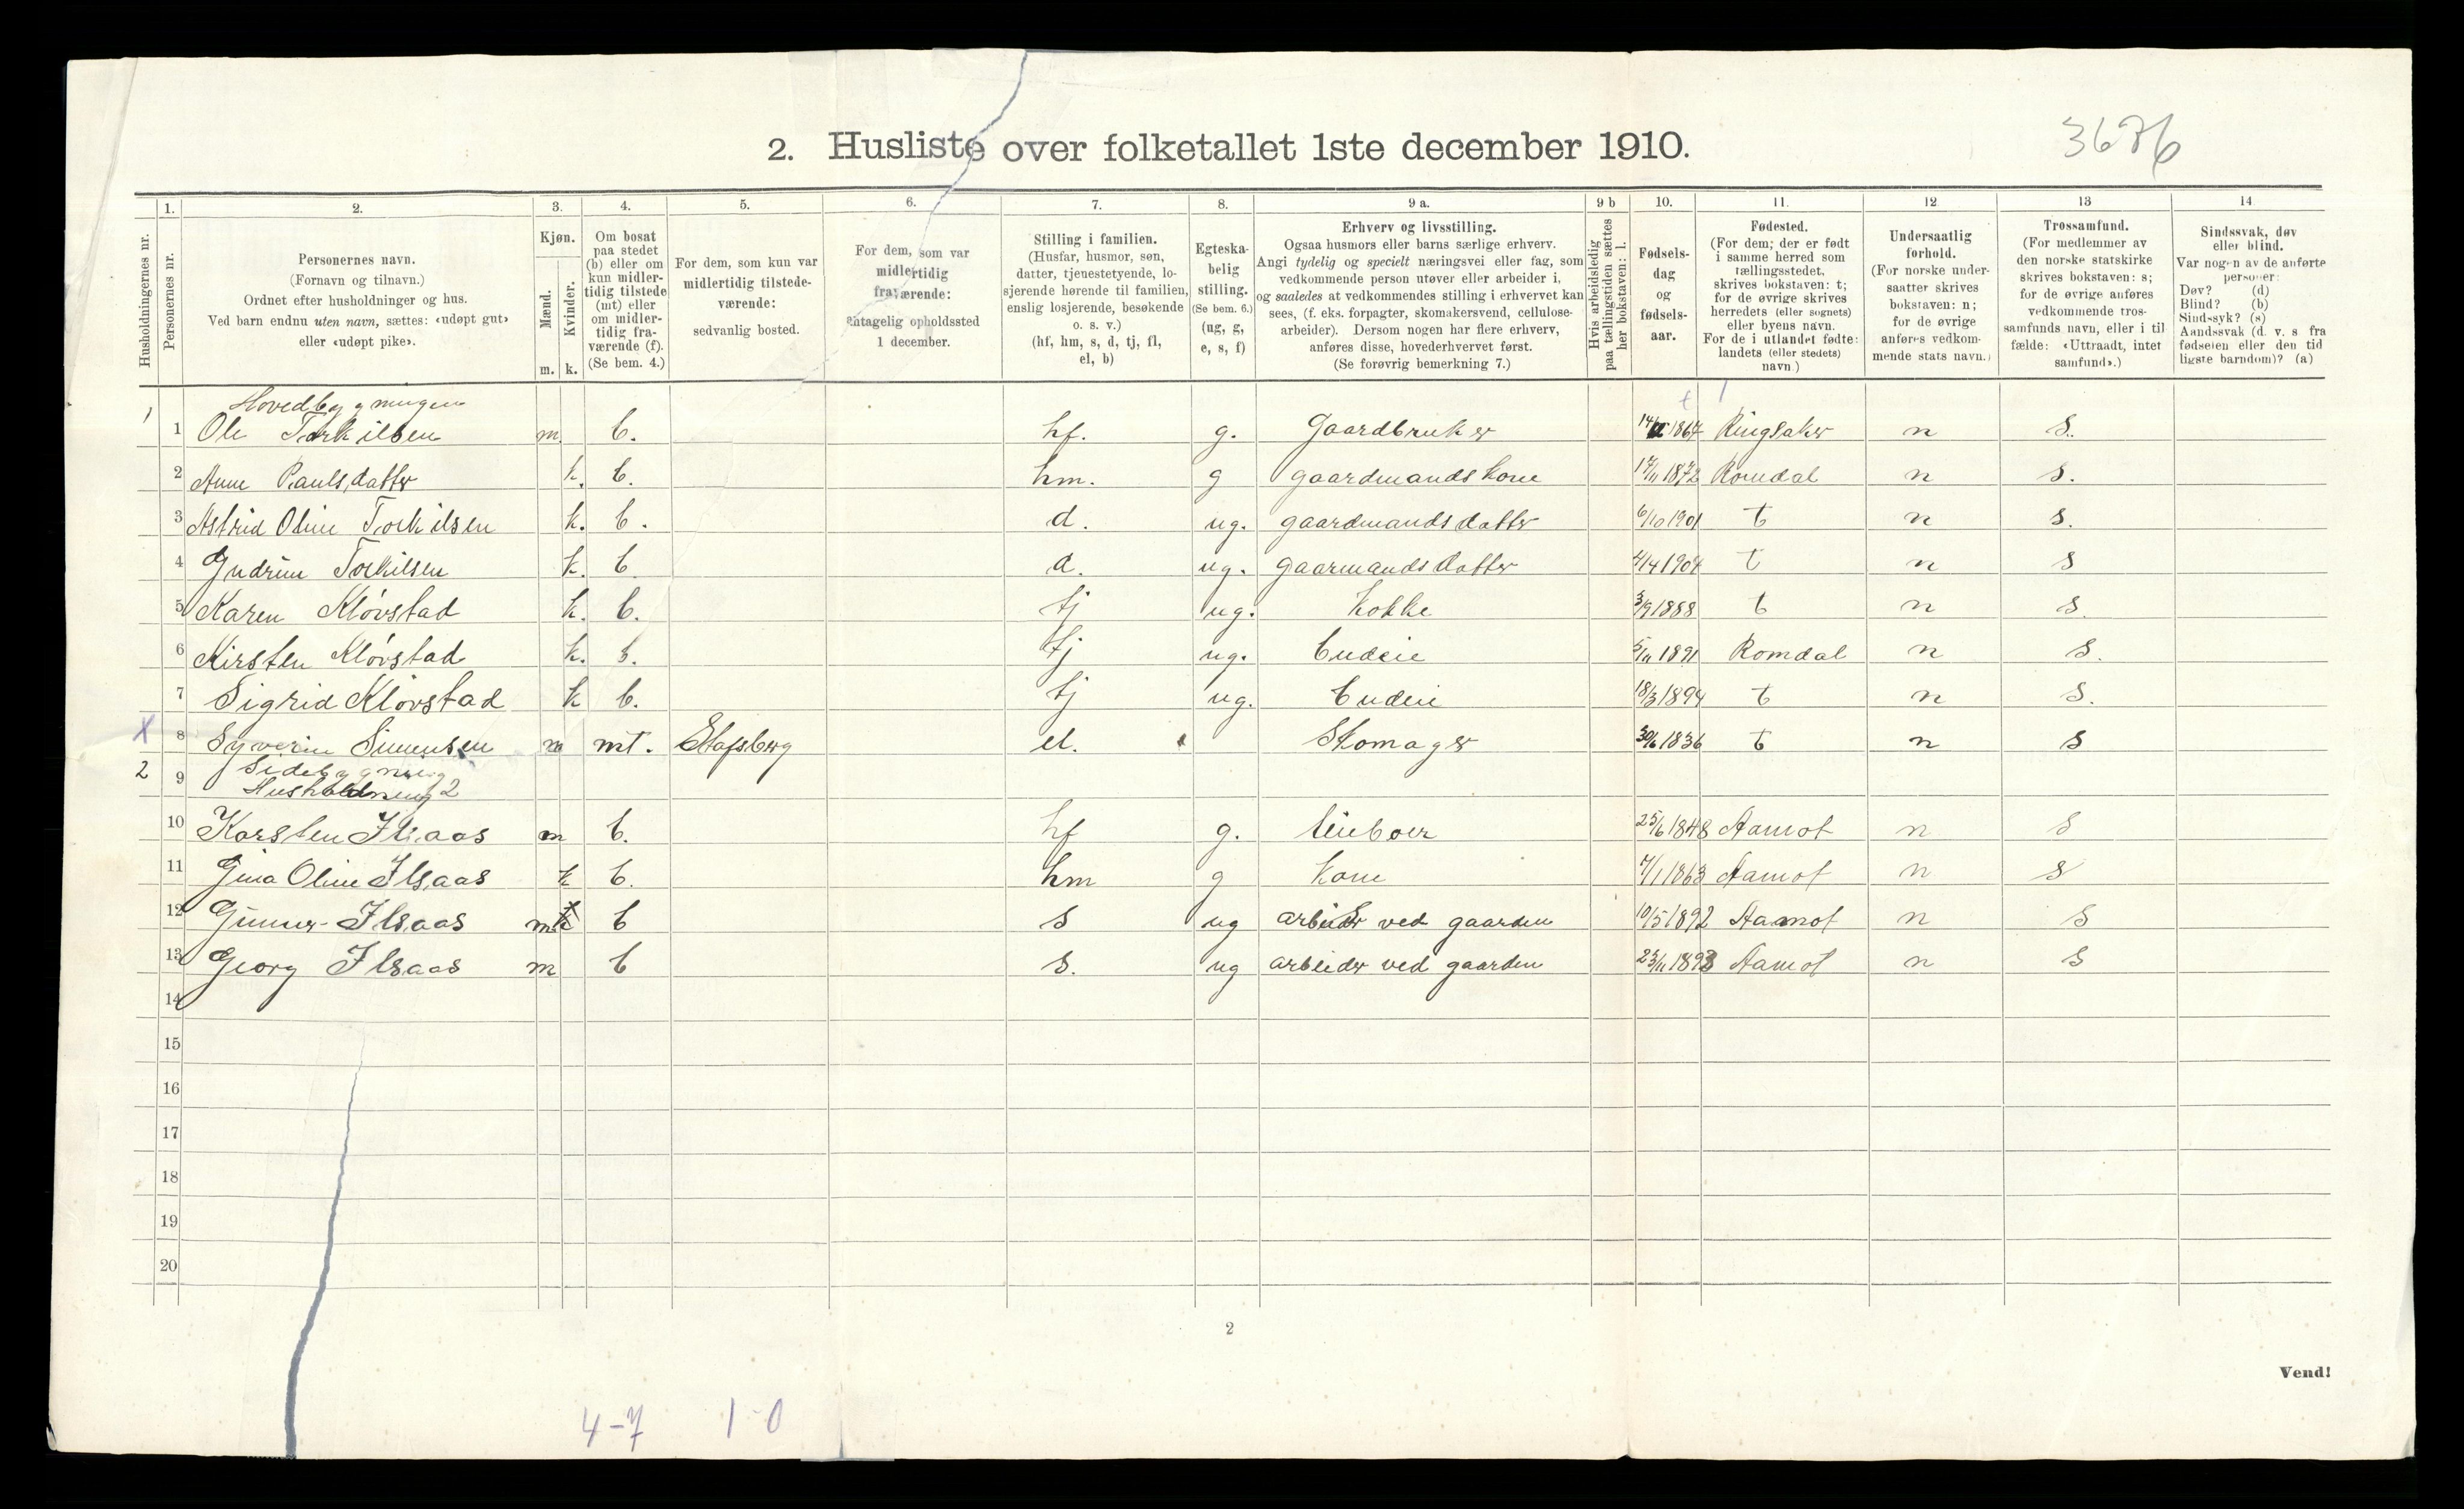 2. Husliste over folketallet 1ste december 1910.
3676
Husholdningernes nr.
1.
Personernes nr.
2.
Personernes navn.
(Fornavn og tilnavn.)
Ordnet efter husholdninger og hus.
Ved barn endnu uten navn, sættes: «udøpt gut»
eller «udøpt pike».
3.
Kjøn.
Mænd.
Kvinder.
m. k.
4.
Om bosat
paa stedet
(b) eller om
kun midler-
tidig tilstede
(mt) eller
om midler-
tidig fra-
værende (f).
(Se bem. 4.)
5.
For dem, som kun var
midlertidig tilstede-
værende:
sedvanlig bosted.
6.
For dem, som var
midlertidig
fraværende:
antagelig opholdssted
1 december.
7.
Stilling i familien.
(Husfar, husmor, søn,
datter, tjenestetyende, lo-
sjerende hørende til familien,
enslig losjerende, besøkende
o. s. v.)
(hf, hm, s, d, tj, fl,
el, b)
8.
Egteska-
belig
stilling.
(Se bem. 6.)
(ug, g,
e, s, f)
9 a.
Erhverv og livsstilling.
Ogsaa husmors eller barns særlige erhverv.
Angi tydelig og specielt næringsvei eller fag, som
vedkommende person utøver eller arbeider i,
og saaledes at vedkommendes stilling i erhvervet kan
sees, (f. eks. forpagter, skomakersvend, cellulose-
arbeider). Dersom nogen har flere erhverv,
anføres disse, hovederhvervet først.
(Se forøvrig bemerkning 7.)
9 b
Hvis arbeidsledig
paa tællingstiden sættes
her bokstaven: l.
10.
Fødsels-
dag
og
fødsels-
aar.
11.
Fødested.
(For dem; der er født
i samme herred som
tællingsstedet,
skrives bokstaven: t;
for de øvrige skrives
herredets (eller sognets)
eller byens navn.
For de i utlandet fødte:
landets (eller stedets)
navn.)
12
Undersaatlig
forhold.
(For norske under-
saatter skrives
bokstaven: n;
for de øvrige
anføres vedkom-
mende stats navn.)
13
Trossamfund.
(For medlemmer av
den norske statskirke
skrives bokstaven: s;
for de øvrige anføres
vedkommende tros-
samfunds navn, eller i til
fælde: «Uttraadt, intet
samfund».)
14
Sindssvak, døv
eller blind.
Var nogen av de anførte
personer:
Døv? (d)
Blind? (b)
Sindssyk? (s)
Aandssvak (d. v. s. fra
fødselen eller den tid
ligste barndom)? (a)
Hovedbygningen
1 1 Ole Torkilsen m b. hf. g. Gaardbruker 1867 Ringsaker n s.
2 Anne Paulsdatter k. b. hm. g gaardmandskone 17/11 1872 Romdal n s.
3 Astrid Oline Torkilsen k. b. d. ug. gaardmandsdatter 6/10 1901 t n s.
4 Gudrun Torkilsen k. b d. ug. gaarmandsdatter 4/4 1904 t n s
5 Karen Kløvstad k. b. tj ug. Kokke 3/9 1888 t n s.
6 Kirsten Kløvstad k. b. tj ug. budeie 5/11 1891 Romdal n s.
7 Sigrid Kløvstad k b. tj ug. budeie 18/3 1894 t n s.
X 8 Syverin Simensen m mt. Stafsberg el. Skomager 30/6 1836 t n s
2 9 Sidebygning
Husholdning 2
10 Karsten Ilsaas m b. hf g. leieboer 25/6 1848 Aamot n s
11 Gina Oline Ilsaas k b. hm g Kone 7/1 1863 Aamot n s
12 Gunner Ilsaas m b s ug arbeider ved gaarden 10/5 1892 Aamot n s
13 Georg Ilsaas m b s. ug arbeider ved gaarden 23/11 1893 Aamot n s
14
15
16
17
18
19
20
2
Vend!
4-7 1-0